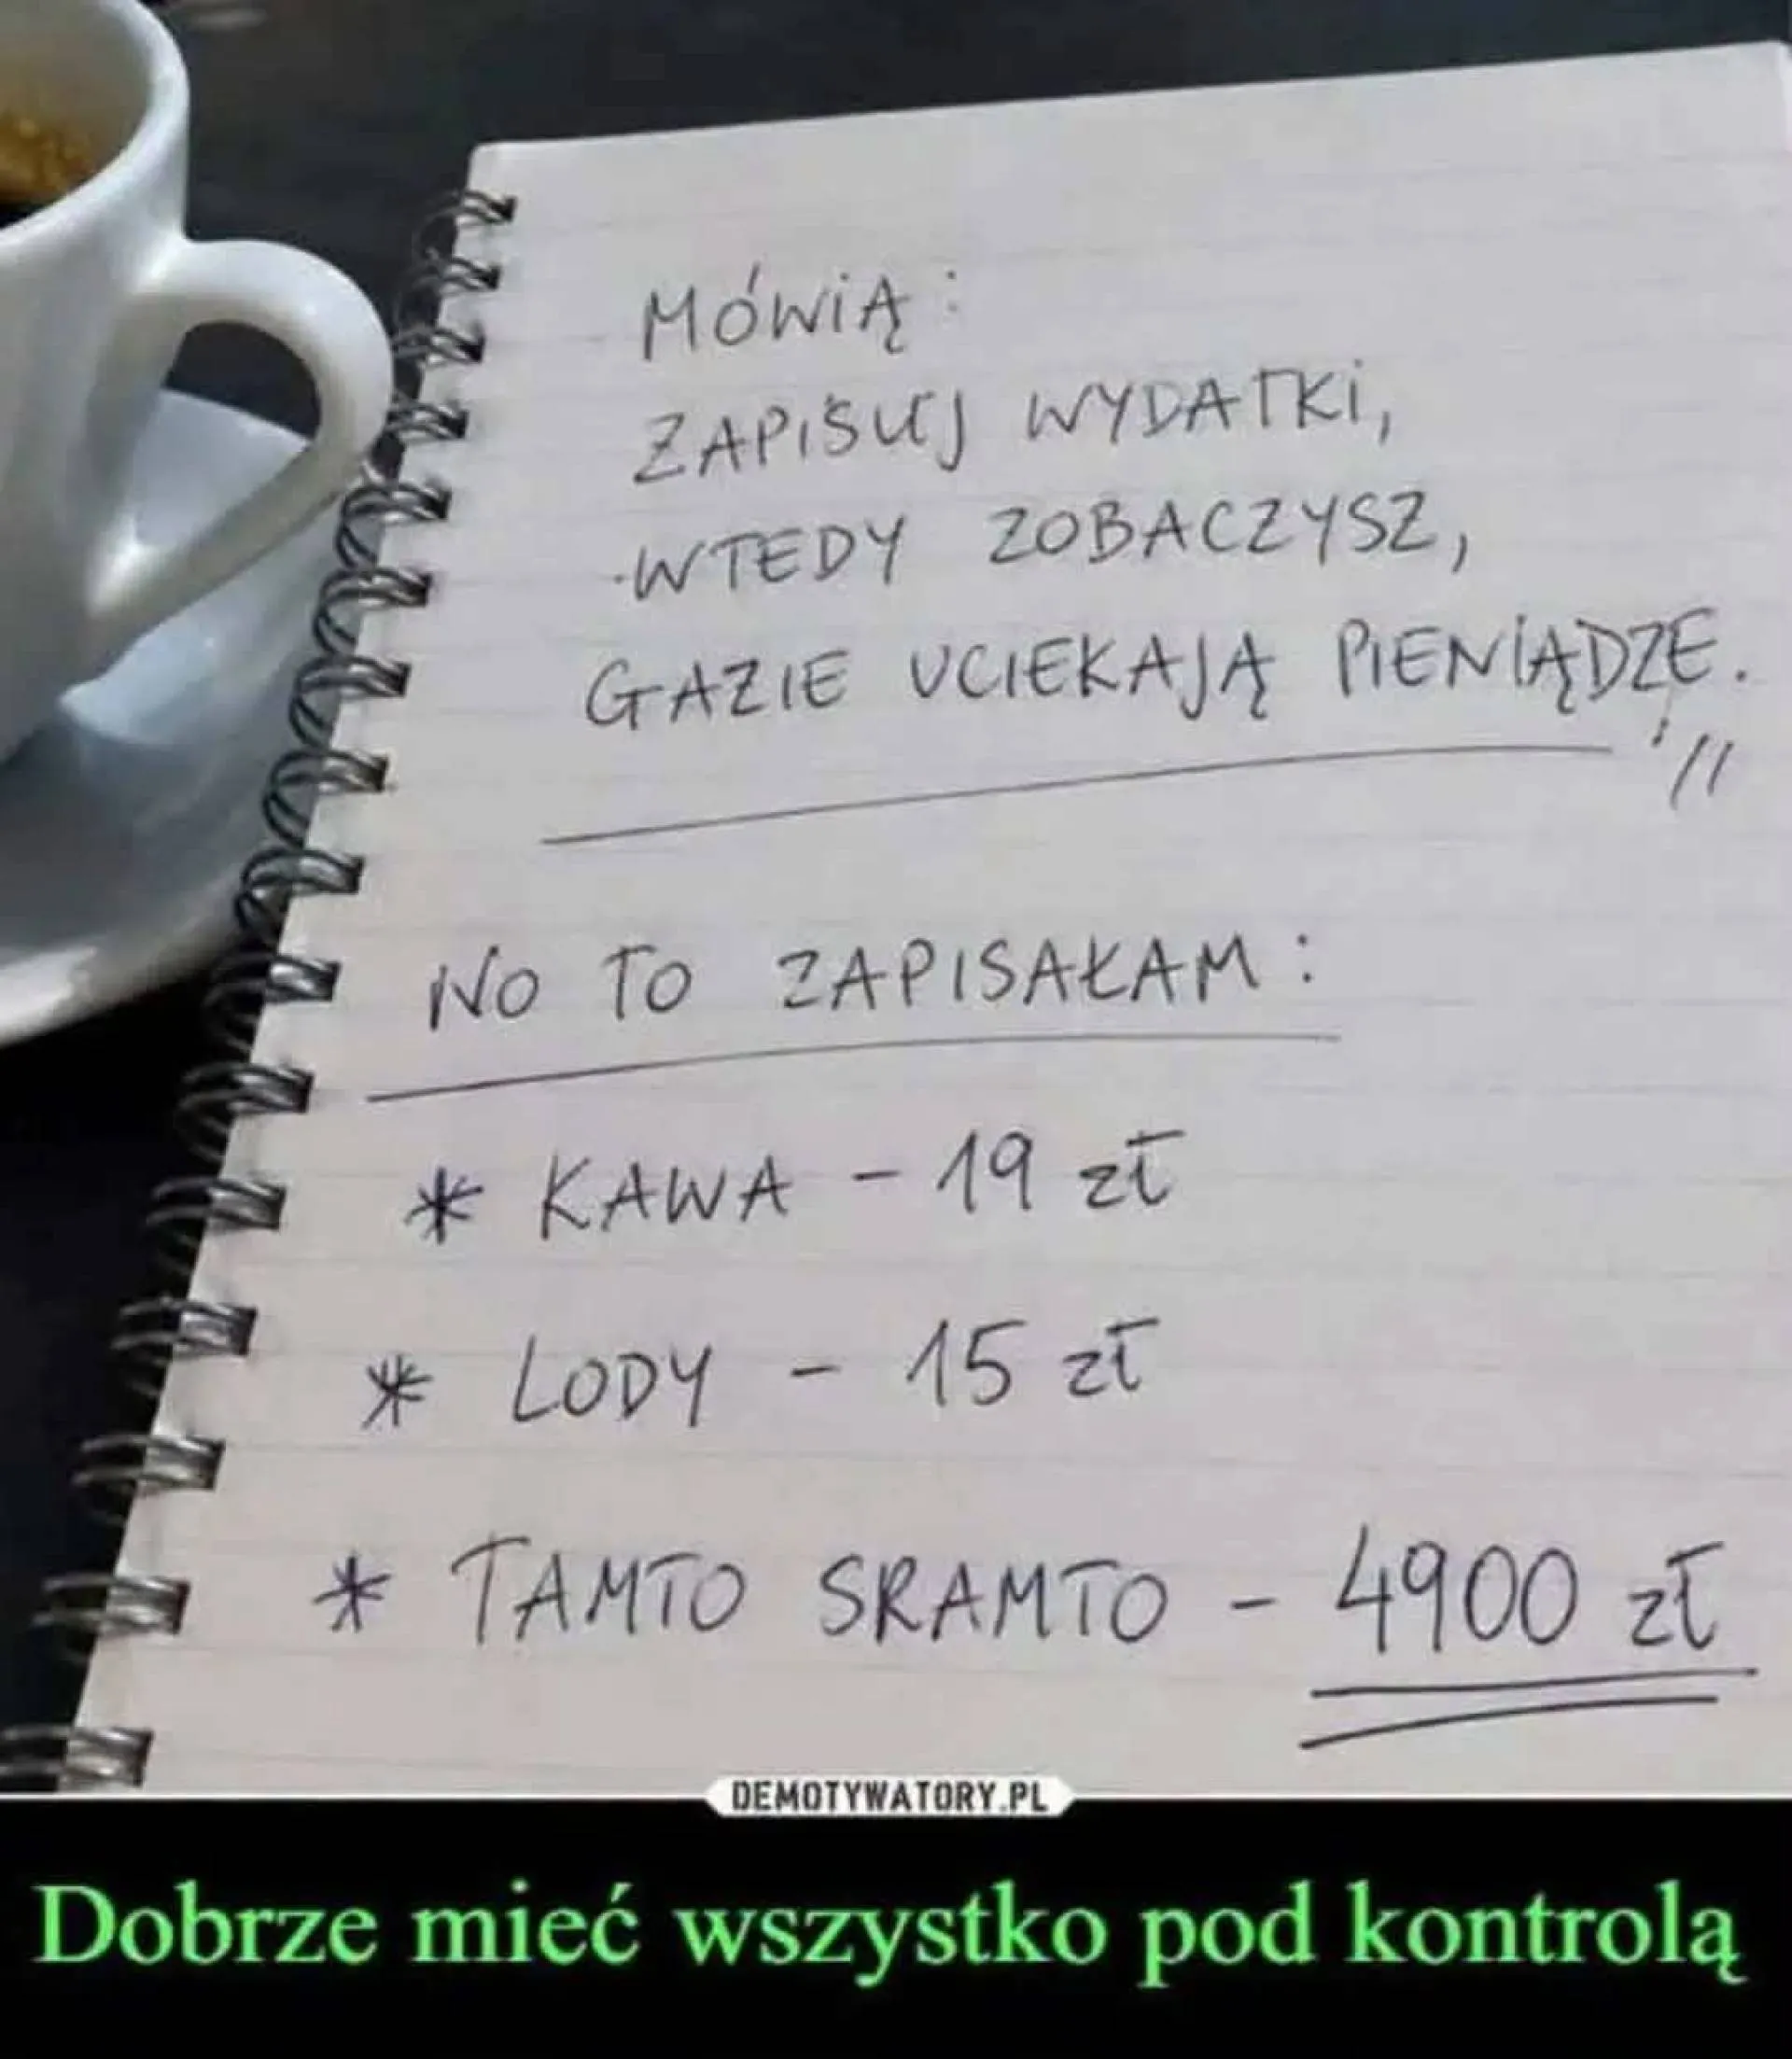 MÓWIĄ:
ZAPISUJ WYDATKI,
WTEDY ZOBACZYSZ,
GDZIE UCIEKAJĄ PIENIĄDZE."
NO TO ZAPISAŁAM:
* KAWA - 19 zł
* LODY - 15 zł
* TAMTO SRAMTO - 4900 zł
DEMOTYWATORY.PL
Dobrze mieć wszystko pod kontrolą